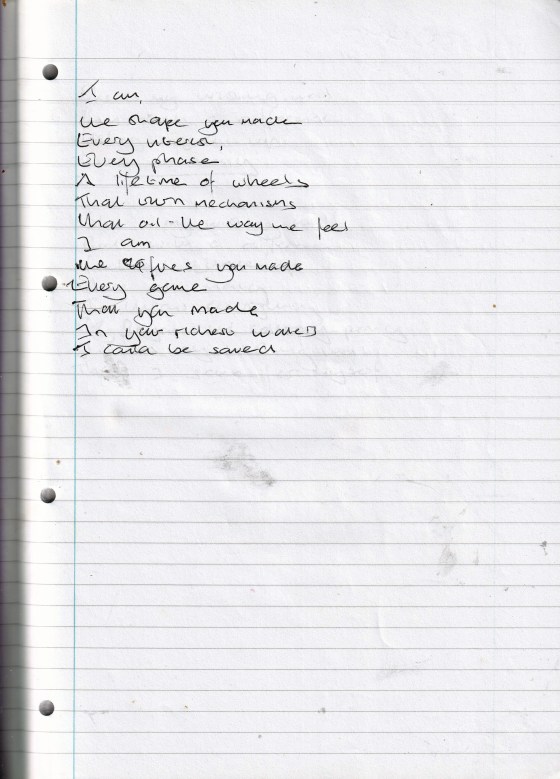 I am,
The shape you made
Every
Every phase
A lifetime of wheels
That own mechanisms
That oil the way we feel
I am
The you made
Every game
That you made
In your richest
I could be saved